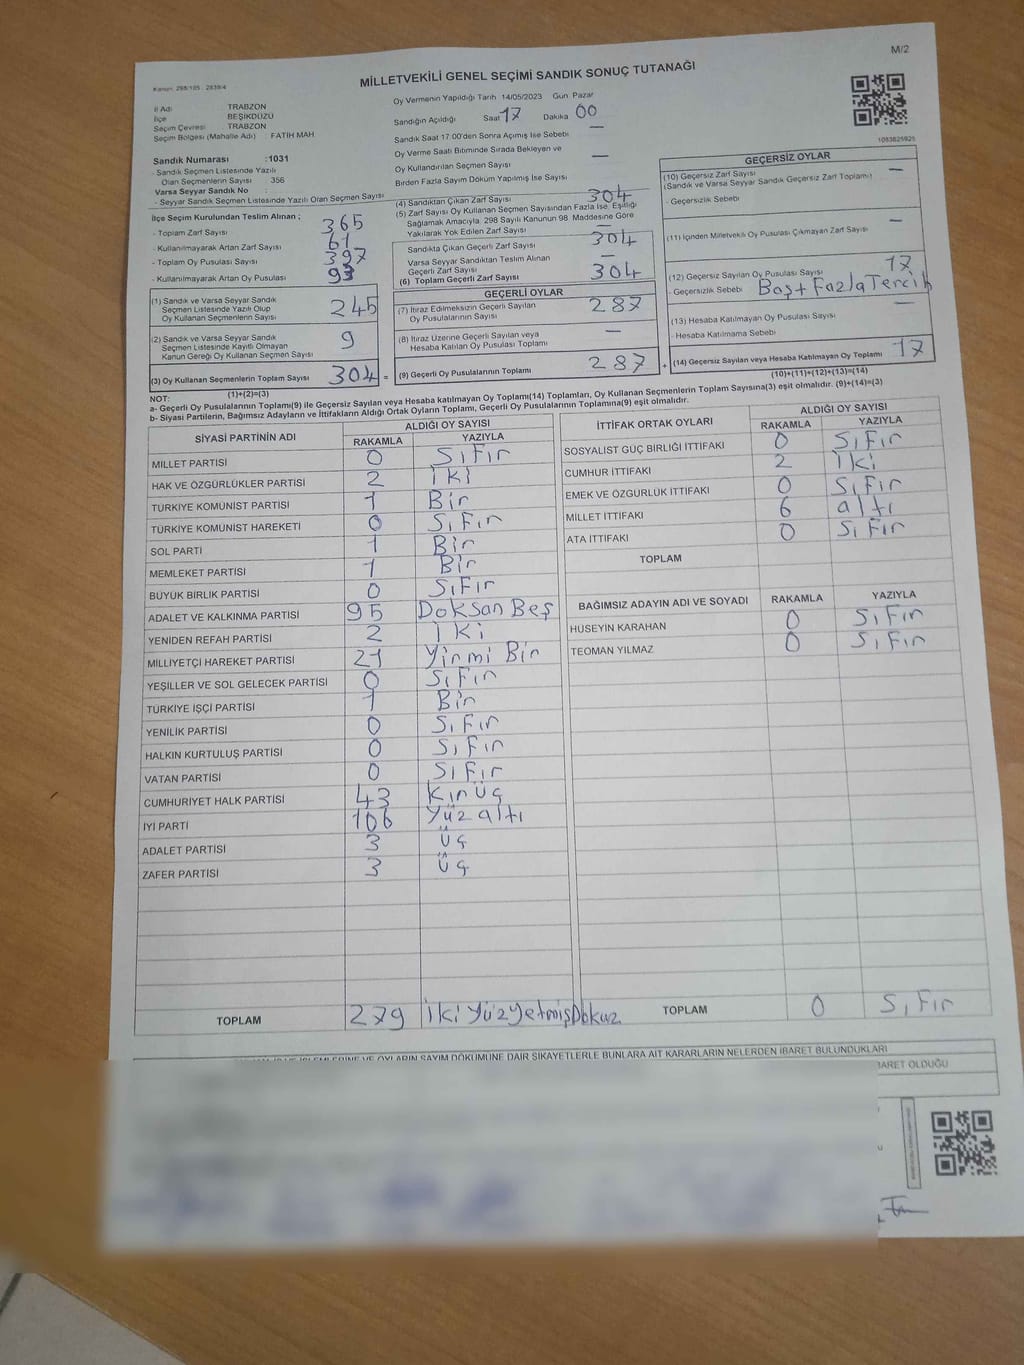 M/2
Kanun: 298/105 2839/4
MİLLETVEKİLİ GENEL SEÇİMİ SANDIK SONUÇ TUTANAĞI
İl Adı TRABZON
İlçe BEŞİKDÜZÜ
Seçim Çevresi TRABZON
Seçim Bölgesi (Mahalle Adı) : FATİH MAH
Sandık Numarası :1031
- Sandık Seçmen Listesinde Yazılı
Olan Seçmenlerin Sayısı : 356
Varsa Seyyar Sandık No :
- Seyyar Sandık Seçmen Listesinde Yazılı Olan Seçmen Sayısı
İlçe Seçim Kurulundan Teslim Alınan ;
- Toplam Zarf Sayısı 365
- Kullanılmayarak Artan Zarf Sayısı 61
- Toplam Oy Pusulası Sayısı 397
- Kullanılmayarak Artan Oy Pusulası 93
(1) Sandık ve Varsa Seyyar Sandık
Seçmen Listesinde Yazılı Olup
Oy Kullanan Seçmenlerin Sayısı 245
(2) Sandık ve Varsa Seyyar Sandık
Seçmen Listesinde Kayıtlı Olmayan
Kanun Gereği Oy Kullanan Seçmen Sayısı 9
(3) Oy Kullanan Seçmenlerin Toplam Sayısı 304 =
(1)+(2)=(3)
Oy Vermenin Yapıldığı Tarih 14/05/2023 Gün Pazar
Sandığın Açıldığı Saat 17 Dakika 00
Sandık Saat 17:00'den Sonra Açımış İse Sebebi —
Oy Verme Saati Bitiminde Sırada Bekleyen ve
Oy Kullandırılan Seçmen Sayısı —
Birden Fazla Sayım Döküm Yapılmış İse Sayısı
(4) Sandıktan Çıkan Zarf Sayısı 304
(5) Zarf Sayısı Oy Kullanan Seçmen Sayısından Fazla İse, Eşitliği
Sağlamak Amacıyla, 298 Sayılı Kanunun 98. Maddesine Göre
Yakılarak Yok Edilen Zarf Sayısı —
Sandıkta Çıkan Geçerli Zarf Sayısı 304
Varsa Seyyar Sandıktan Teslim Alınan
Geçerli Zarf Sayısı —
(6) Toplam Geçerli Zarf Sayısı 304
GEÇERLİ OYLAR
(7) İtiraz Edilmeksizin Geçerli Sayılan
Oy Pusulalarının Sayısı 287
(8) İtiraz Üzerine Geçerli Sayılan veya
Hesaba Katılan Oy Pusulası Toplamı —
(9) Geçerli Oy Pusulalarının Toplamı 287 +
1083825925
GEÇERSİZ OYLAR
(10) Geçersiz Zarf Sayısı
(Sandık ve Varsa Seyyar Sandık Geçersiz Zarf Toplamı) —
- Geçersizlik Sebebi
(11) İçinden Milletvekili Oy Pusulası Çıkmayan Zarf Sayısı —
(12) Geçersiz Sayılan Oy Pusulası Sayısı 17
- Geçersizlik Sebebi Boş + Fazla Tercih
(13) Hesaba Katılmayan Oy Pusulası Sayısı —
- Hesaba Katılmama Sebebi
(14) Geçersiz Sayılan veya Hesaba Katılmayan Oy Toplamı 17
(10)+(11)+(12)+(13)=(14)
NOT:
a- Geçerli Oy Pusulalarının Toplamı(9) ile Geçersiz Sayılan veya Hesaba katılmayan Oy Toplamı(14) Toplamları, Oy Kullanan Seçmenlerin Toplam Sayısına(3) eşit olmalıdır. (9)+(14)=(3)
b- Siyasi Partilerin, Bağımsız Adayların ve İttifakların Aldığı Ortak Oyların Toplamı, Geçerli Oy Pusulalarının Toplamına(9) eşit olmalıdır.
SİYASİ PARTİNİN ADI ALDIĞI OY SAYISI
RAKAMLA YAZIYLA
MİLLET PARTİSİ 0 Sıfır
HAK VE ÖZGÜRLÜKLER PARTİSİ 2 İki
TÜRKİYE KOMÜNİST PARTİSİ 1 Bir
TÜRKİYE KOMÜNİST HAREKETİ 0 Sıfır
SOL PARTİ 1 Bir
MEMLEKET PARTİSİ 1 Bir
BÜYÜK BİRLİK PARTİSİ 0 Sıfır
ADALET VE KALKINMA PARTİSİ 95 Doksan Beş
YENİDEN REFAH PARTİSİ 2 İki
MİLLİYETÇİ HAREKET PARTİSİ 21 Yirmi Bir
YEŞİLLER VE SOL GELECEK PARTİSİ 0 Sıfır
TÜRKİYE İŞÇİ PARTİSİ 1 Bir
YENİLİK PARTİSİ 0 Sıfır
HALKIN KURTULUŞ PARTİSİ 0 Sıfır
VATAN PARTİSİ 0 Sıfır
CUMHURİYET HALK PARTİSİ 43 Kırküç
İYİ PARTİ 106 Yüz altı
ADALET PARTİSİ 3 Üç
ZAFER PARTİSİ 3 Üç
TOPLAM 279 İki YüzYetmişDokuz
İTTİFAK ORTAK OYLARI ALDIĞI OY SAYISI
RAKAMLA YAZIYLA
SOSYALİST GÜÇ BİRLİĞİ İTTİFAKI 0 Sıfır
CUMHUR İTTİFAKI 2 İki
EMEK VE ÖZGÜRLÜK İTTİFAKI 0 Sıfır
MİLLET İTTİFAKI 6 altı
ATA İTTİFAKI 0 Sıfır
TOPLAM
BAĞIMSIZ ADAYIN ADI VE SOYADI RAKAMLA YAZIYLA
HÜSEYİN KARAHAN 0 Sıfır
TEOMAN YILMAZ 0 Sıfır
TOPLAM 0 Sıfır
OYLARIN SAYIM DÖKÜMÜNE DAİR ŞİKAYETLERLE BUNLARA AİT KARARLARIN NELERDEN İBARET BULUNDUKLARI
İBARET OLDUĞU